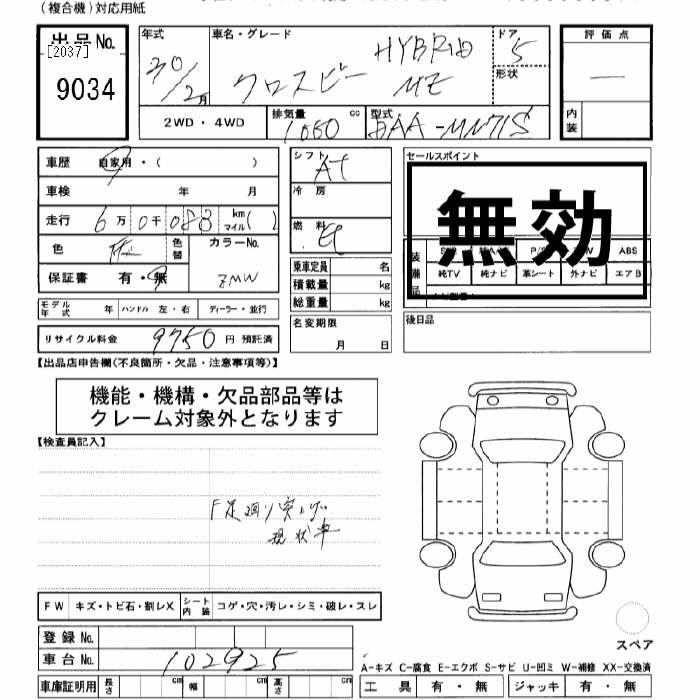 (複合機)対応用紙
出品No.
[2037]
9034
年式
30/2月
車名・グレード
クロスビー HYBRID MZ
ドア
5
形状
2WD・4WD
排気量 cc
1000
型式
DAA-MN71S
評価点
—
内装
車歴 自家用・( )
車検 年 月
走行 6万0千088 km マイル( )
色
色替
カラーNo.
ZMW
保証書 有・無
モデル年式 年 ハンドル 左・右 ディーラー・並行
リサイクル料金 9750円 預託済
シフト
AT
冷房
燃料
乗車定員 名
積載量 kg
総重量 kg
名変期限
月 日
セールスポイント
無効
装備品
ABS
純TV 純ナビ 革シート 外ナビ エアB
後日品
【出品店申告欄(不良箇所・欠品・注意事項等)】
機能・機構・欠品部品等は
クレーム対象外となります
【検査員記入】
F足廻り突上げ。
現状車
FW キズ・トビ石・割レX シート内装 コゲ・穴・汚レ・シミ・破レ・スレ
登録No.
車台No. 102925
車庫証明用 長さ cm 幅 cm 高さ cm
スペア
A-キズ C-腐食 E-エクボ S-サビ U-凹ミ W-補修 XX-交換済
工具 有・無 ジャッキ 有・無